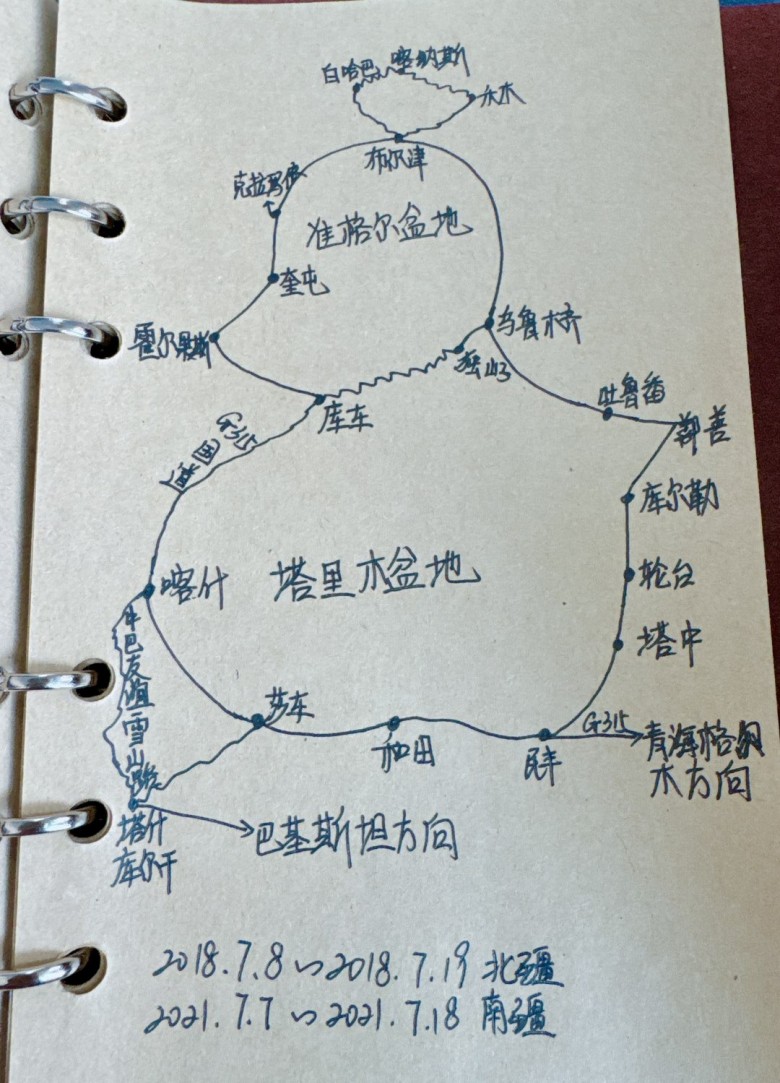 白哈巴 喀纳斯
禾木
布尔津
克拉玛依
准格尔盆地
奎屯
乌鲁木齐
霍尔果斯
独山子
库车
吐鲁番
鄯善
G315
国道
库尔勒
喀什
塔里木盆地
轮台
塔中
中巴友谊
雪山
莎车
和田
民丰
G315
青海格尔
木方向
塔什
库尔干
巴基斯坦方向
2018.7.8~2018.7.19 北疆
2021.7.7~2021.7.18 南疆